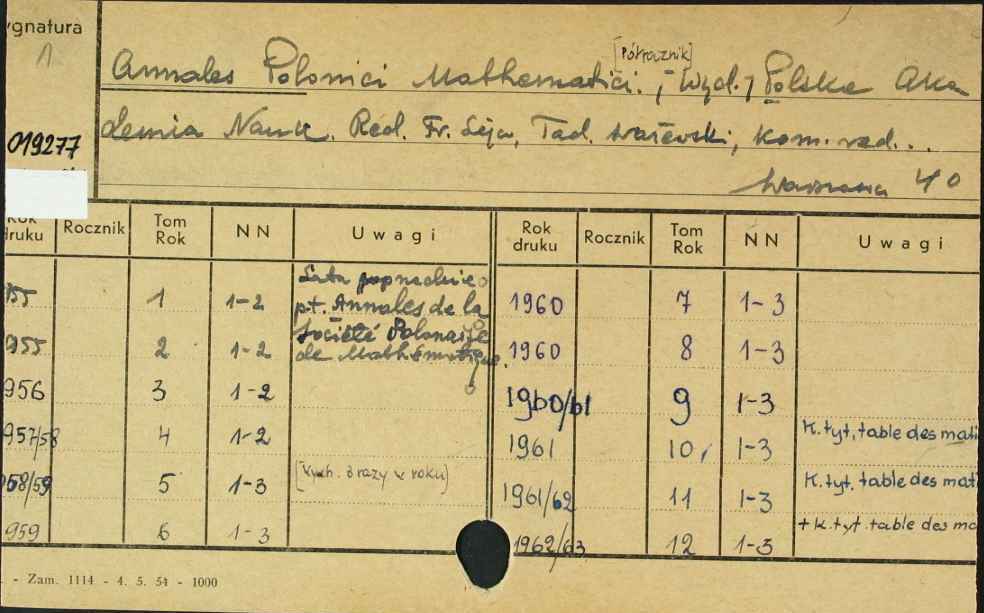 ygnatura
A
[Półrocznik]
Annales Polonici Mathematici. ; Wyd.; Polska Aka
demia Nauk. Red. Fr. Leja, Tad. Ważewski, kom. red...
019277
Warszawa 40
Rok druku Rocznik Tom Rok NN Uwagi Rok druku Rocznik Tom Rok NN Uwagi
955 1 1-2 Lata poprzednie 1960 7 1-3
pt. Annales de la
Société Polonaise
955 2 1-2 de Mathématique. 1960 8 1-3
956 3 1-2 1960/61 9 1-3
957/58 4 1-2 1961 10, 1-3 K. tyt, table des mati
958/59 5 1-3 [Wych. 3 razy w roku] 1961/62 11 1-3 K. tyt. table des mat
959 6 1-3 1962/63 12 1-3 + K. tyt. table des ma
. - Zam. 1114 - 4. 5. 54 - 1000